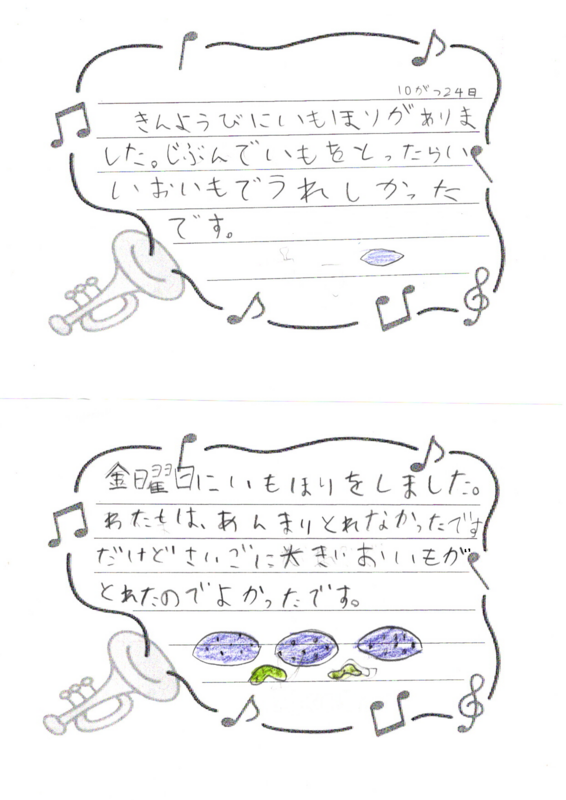 10がつ24日
きんようびにいもほりがありま
した。じぶんでいもをとったらい
いおいもでうれしかった
です。
金曜日にいもほりをしました。
わたしは、あんまりとれなかったです
だけどさいごに大きいおいもが
とれたのでよかったです。